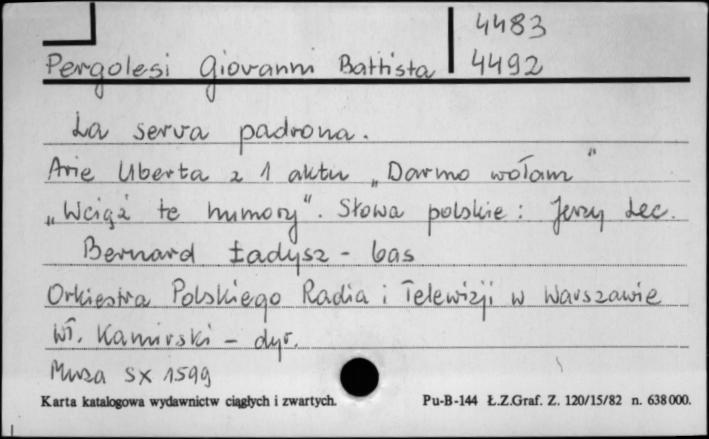 4483
Pergolesi Giovanni Battista 4492
La serva padrona.
Arie Uberta z 1 aktu „Darmo wołam"
„Wciąż te humory". Słowa polskie: Jerzy Lec.
Bernard Ładysz - bas
Orkiestra Polskiego Radia i Telewizji w Warszawie
Wł. Kamirski - dyr.
Muza SX 1599
Karta katalogowa wydawnictw ciągłych i zwartych. Pu-B-144 Ł.Z.Graf. Z. 120/15/82 n. 638000.